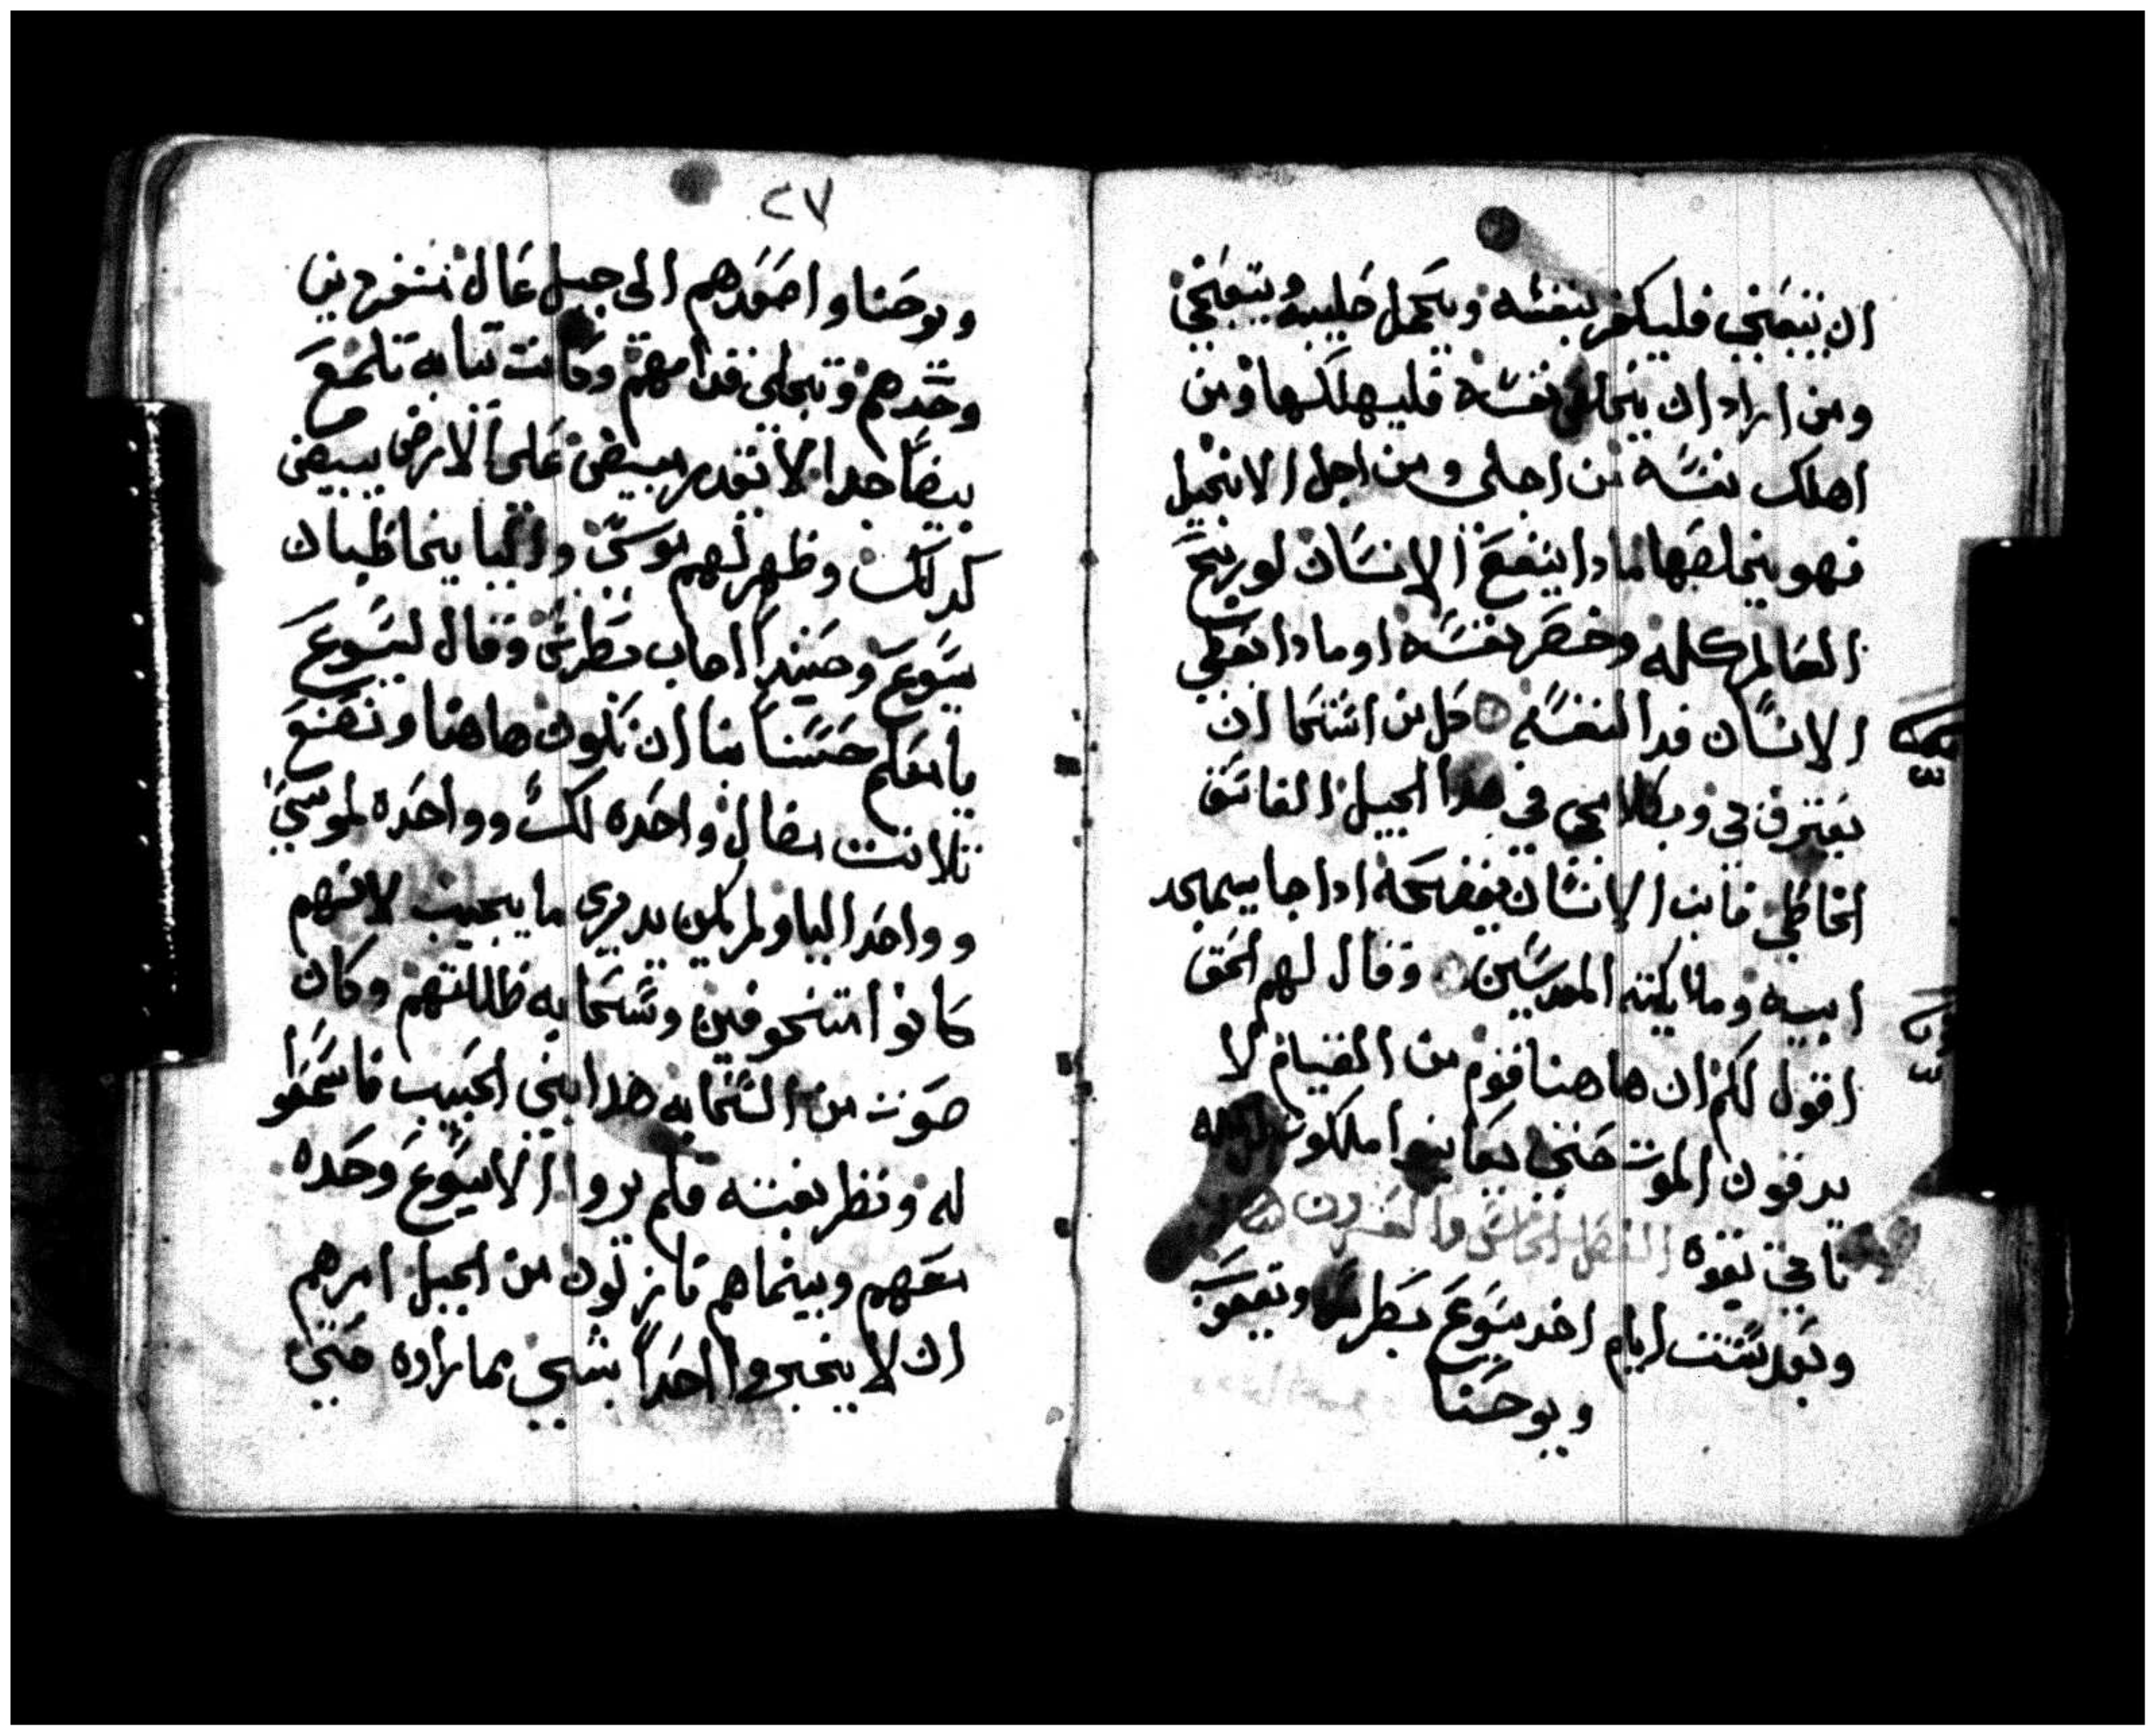 ان يتبعني فليكفر بنفسه ويحمل صليبه ويتبعني
ومن اراد ان يخلص نفسه فليهلكها ومن
اهلك نفسه من اجلي ومن اجل الانجيل
فهو يخلصها مادا ينفع الانسان لو ربح
العالم كله وخصر نفسه او مادا يعطي
الانسان فدا لنفسه كل من استحا ان
يعترف بي وبكلامي في هدا الجيل الفاسق
الخاطي فابن الانسان يفضحه ادا جا بمجد
ابيه وملايكته المقدسين وقال لهم الحق
اقول لكم ان هاهنا قوم من القيام لا
يدقون الموت حتى يعاينوا ملكوت الله
تاتي بقوه الفصل الخامس والعشرون
وبعد ستت ايام اخد يسوع بطرس ويعقوب
ويوحنا
٢٧
ويوحنا واصعدهم الى جبل عال منفردين
وحدهم وتجلى قدامهم وكانت تيابه تلمع
بيضا جدا لا يقدر مبيض على الارض يبيض
كدلك وظهر لهم موسى واليا يخاطبان
يسوع وحينيدا اجاب بطرس وقال ليسوع
يا معلم حسنا بنا ان نكون هاهنا ونصنع
تلاتت مضال واحده لك وواحده لموسي
وواحد اليا ولم يكن يدري ما يجيب لانهم
كانوا متخوفين وسحابه ظللتهم وكان
صوت من السحابه هدا ابني الحبيب فاسمعوا
له ونظر بغتته فلم يروا الا يسوع وحده
معهم وبينماهم نازلون من الجبل امرهم
ان لا يخبروا احدا بشي مما راوه حتى